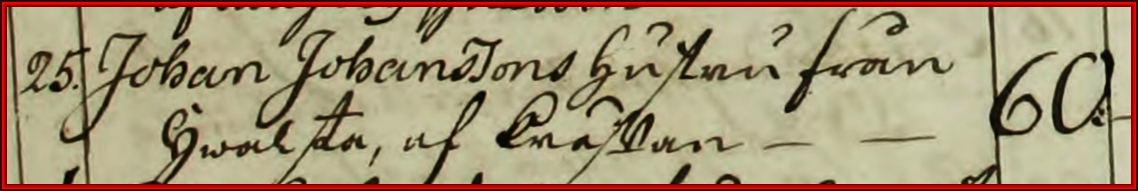 25. Johan Johanssons hustru från 60.
Hwalsta, af Kräftan — —